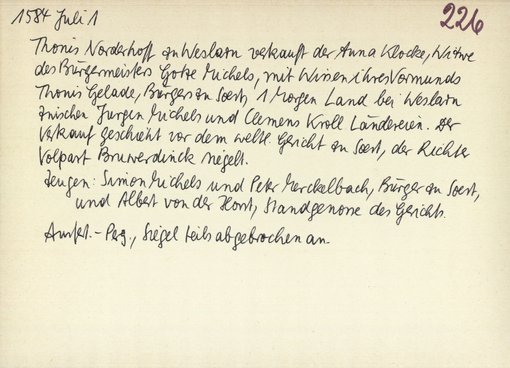 1584 Juli 1
226
Thonis Norderhoff zu Weslarn verkauft der Anna Klocke, Witwe
des Bürgermeisters Gotze Michels, mit Wissen ihres Vormunds
Thonis Gelade, Bürgers zu Soest, 1 Morgen Land bei Weslarn
zwischen Jurgen Michels und Clemens Kroll Ländereien. Der
Verkauf geschieht vor dem weltl. Gericht zu Soest, der Richter
Volpart Bruwerdinck siegelt.
Zeugen: Simon Michels und Peter Merckelbach, Bürger zu Soest,
und Albert von der Horst, Standgenosse des Gerichts.
Ausfert. - Perg., Siegel teils abgebrochen an.